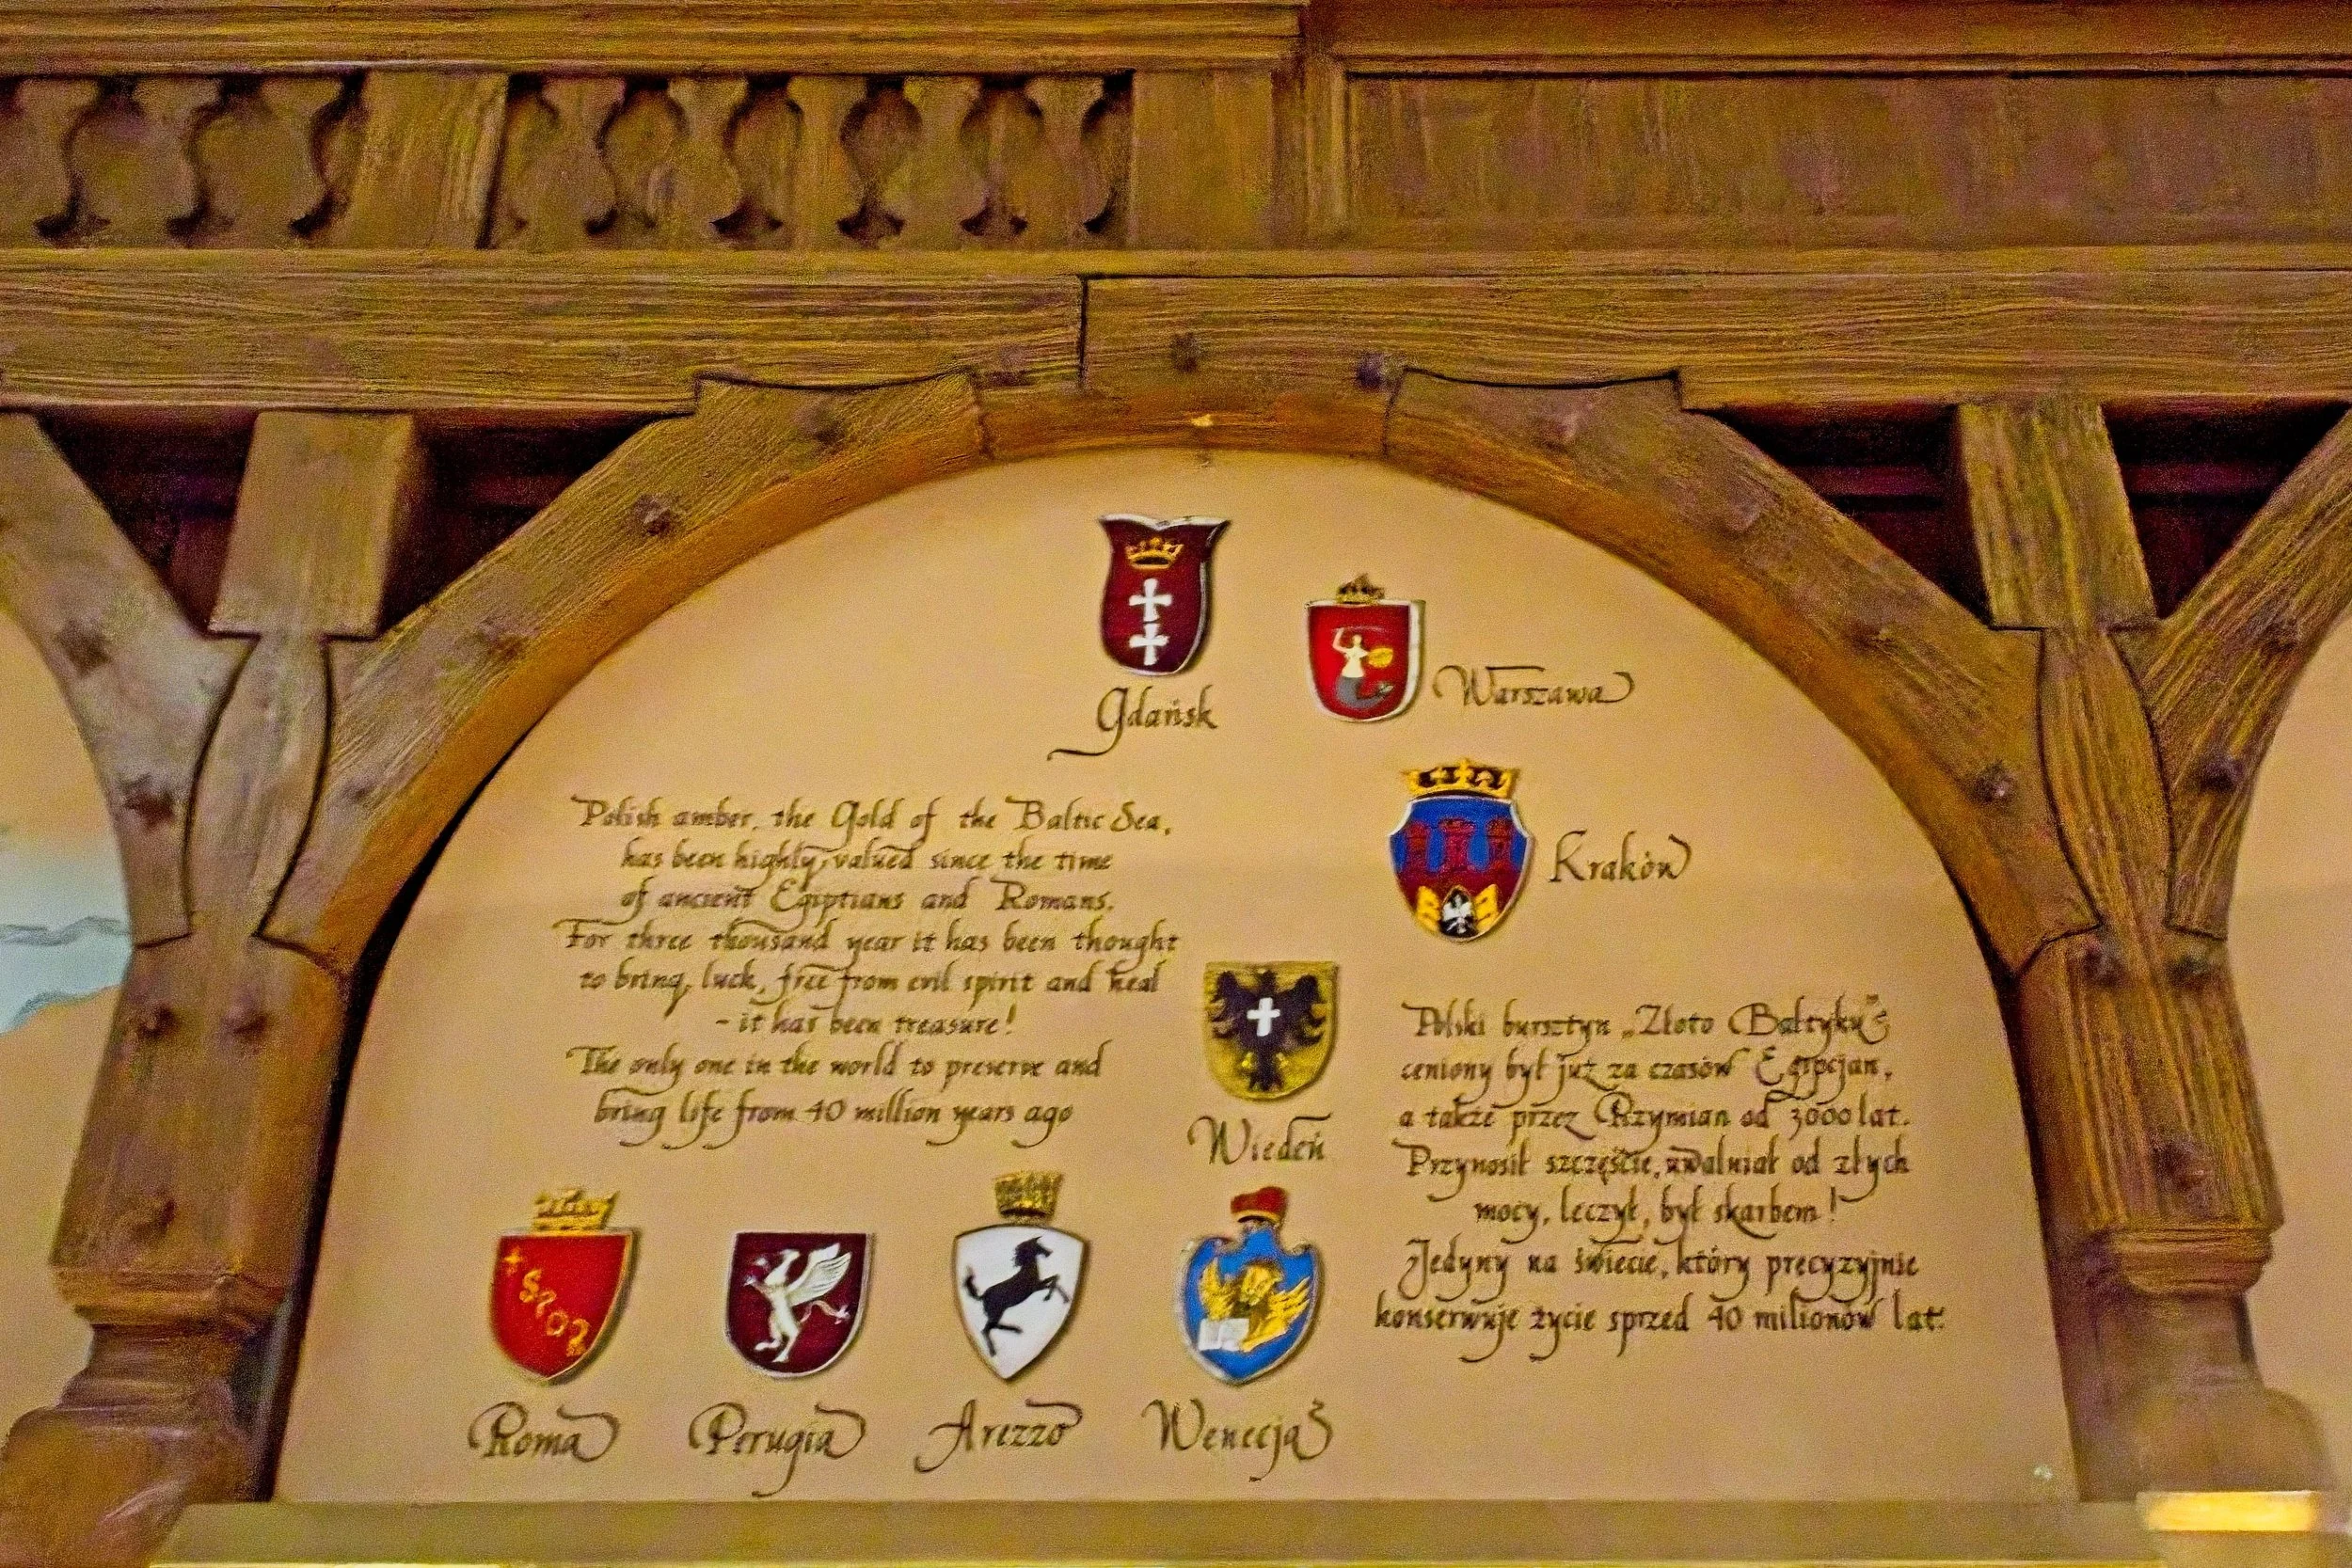 Gdańsk
Warszawa
Kraków
Polish amber, the Gold of the Baltic Sea,
has been highly valued since the time
of ancient Egiptians and Romans.
For three thousand year it has been thought
to bring luck, free from evil spirit and heal
- it has been treasure!
The only one in the world to preserve and
bring life from 40 million years ago
Wiedeń
Polski bursztyn „Złoto Bałtyku”
ceniony był już za czasów Egipcjan,
a także przez Rzymian od 3000 lat.
Przynosił szczęście, uwalniał od złych
mocy, leczył, był skarbem!
Jedyny na świecie, który precyzyjnie
konserwuje życie sprzed 40 milionów lat.
+ SPQR
Roma
Perugia
Arezzo
Wenecja